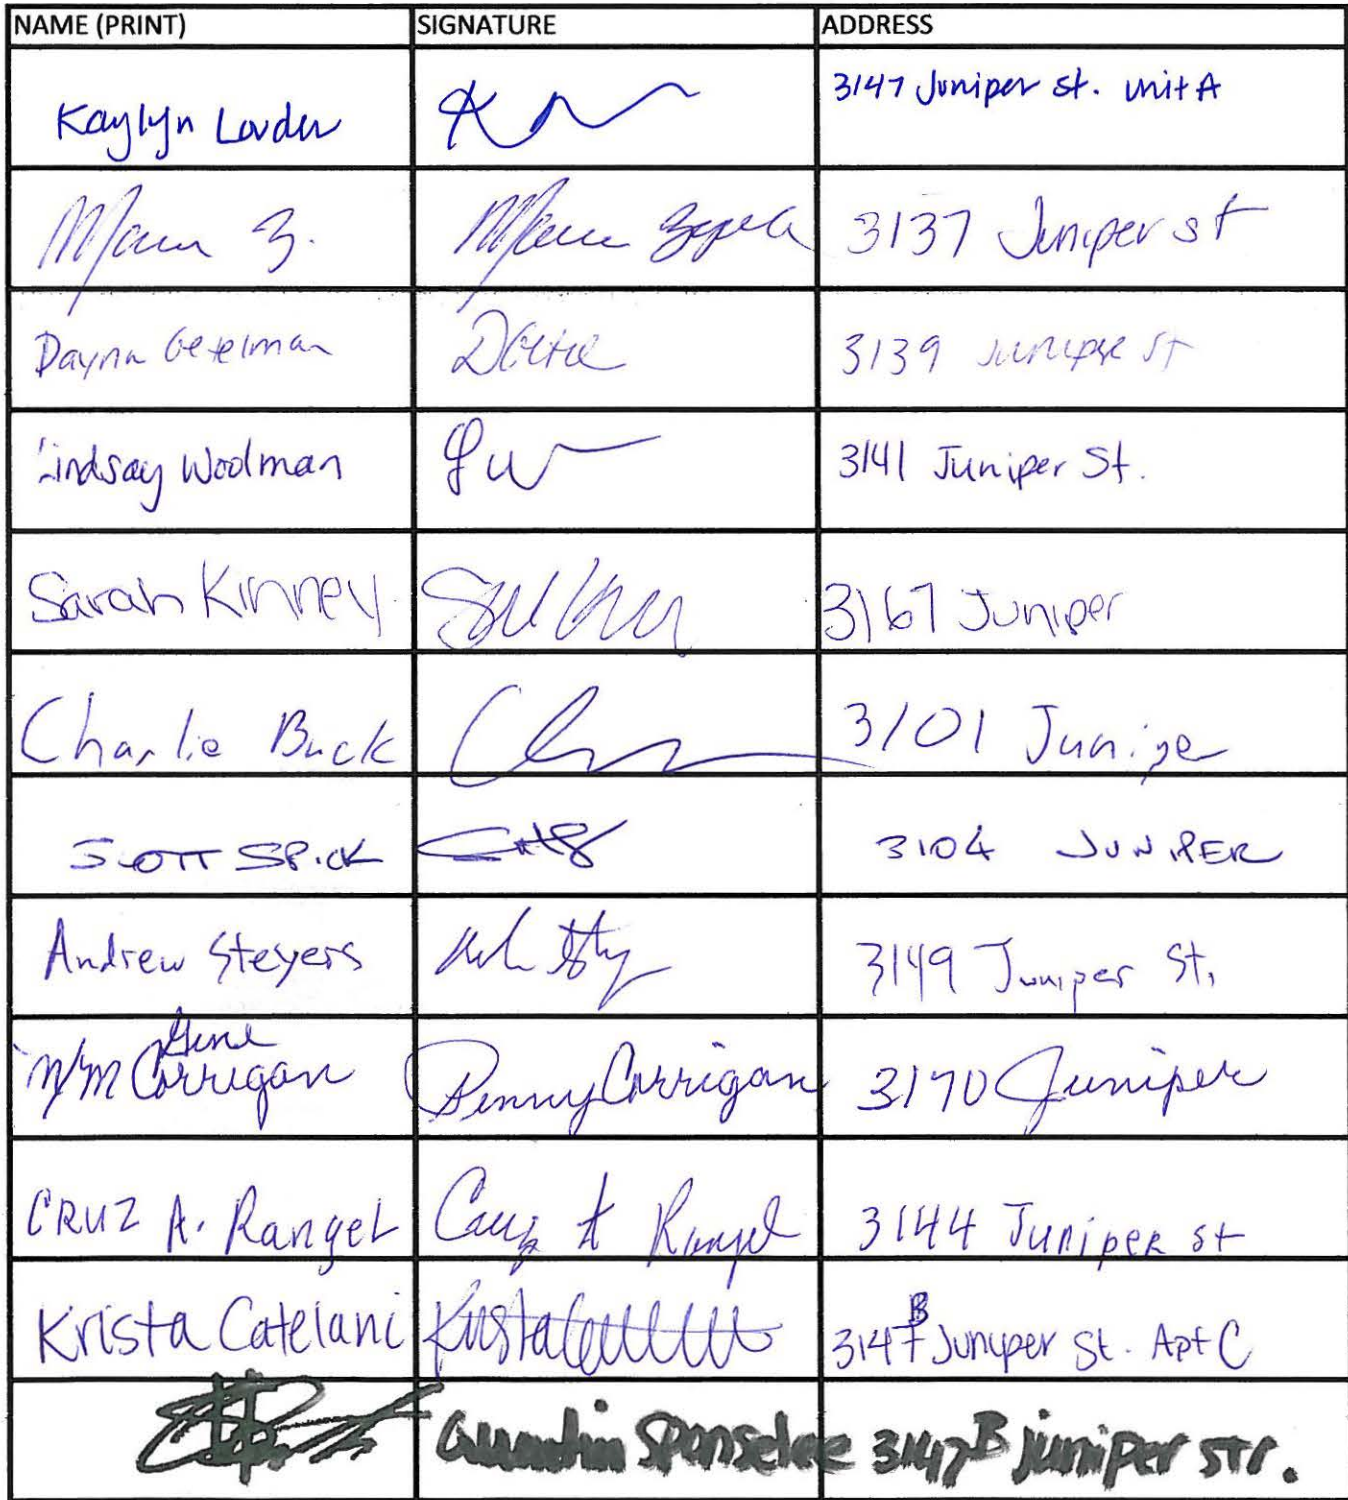 NAME (PRINT) SIGNATURE ADDRESS
Kaylyn Louder 3147 Juniper St. unit A
3137 Juniper st
Dayna Getelman 3139 Juniper St
Lindsay Woolman 3141 Juniper St.
Sarah Kinney 3167 Juniper
Charlie Buck 3101 Juniper
SCOTT SPICK 3104 JUNIPER
Andrew Steyers 3149 Juniper St.
Gene
Corrigan Penny Corrigan 3170 Juniper
CRUZ A. Rangel Cruz A Rangel 3144 Juniper st
B
Krista Catelani Krista 3147 Juniper St. Apt C
3147B juniper str.